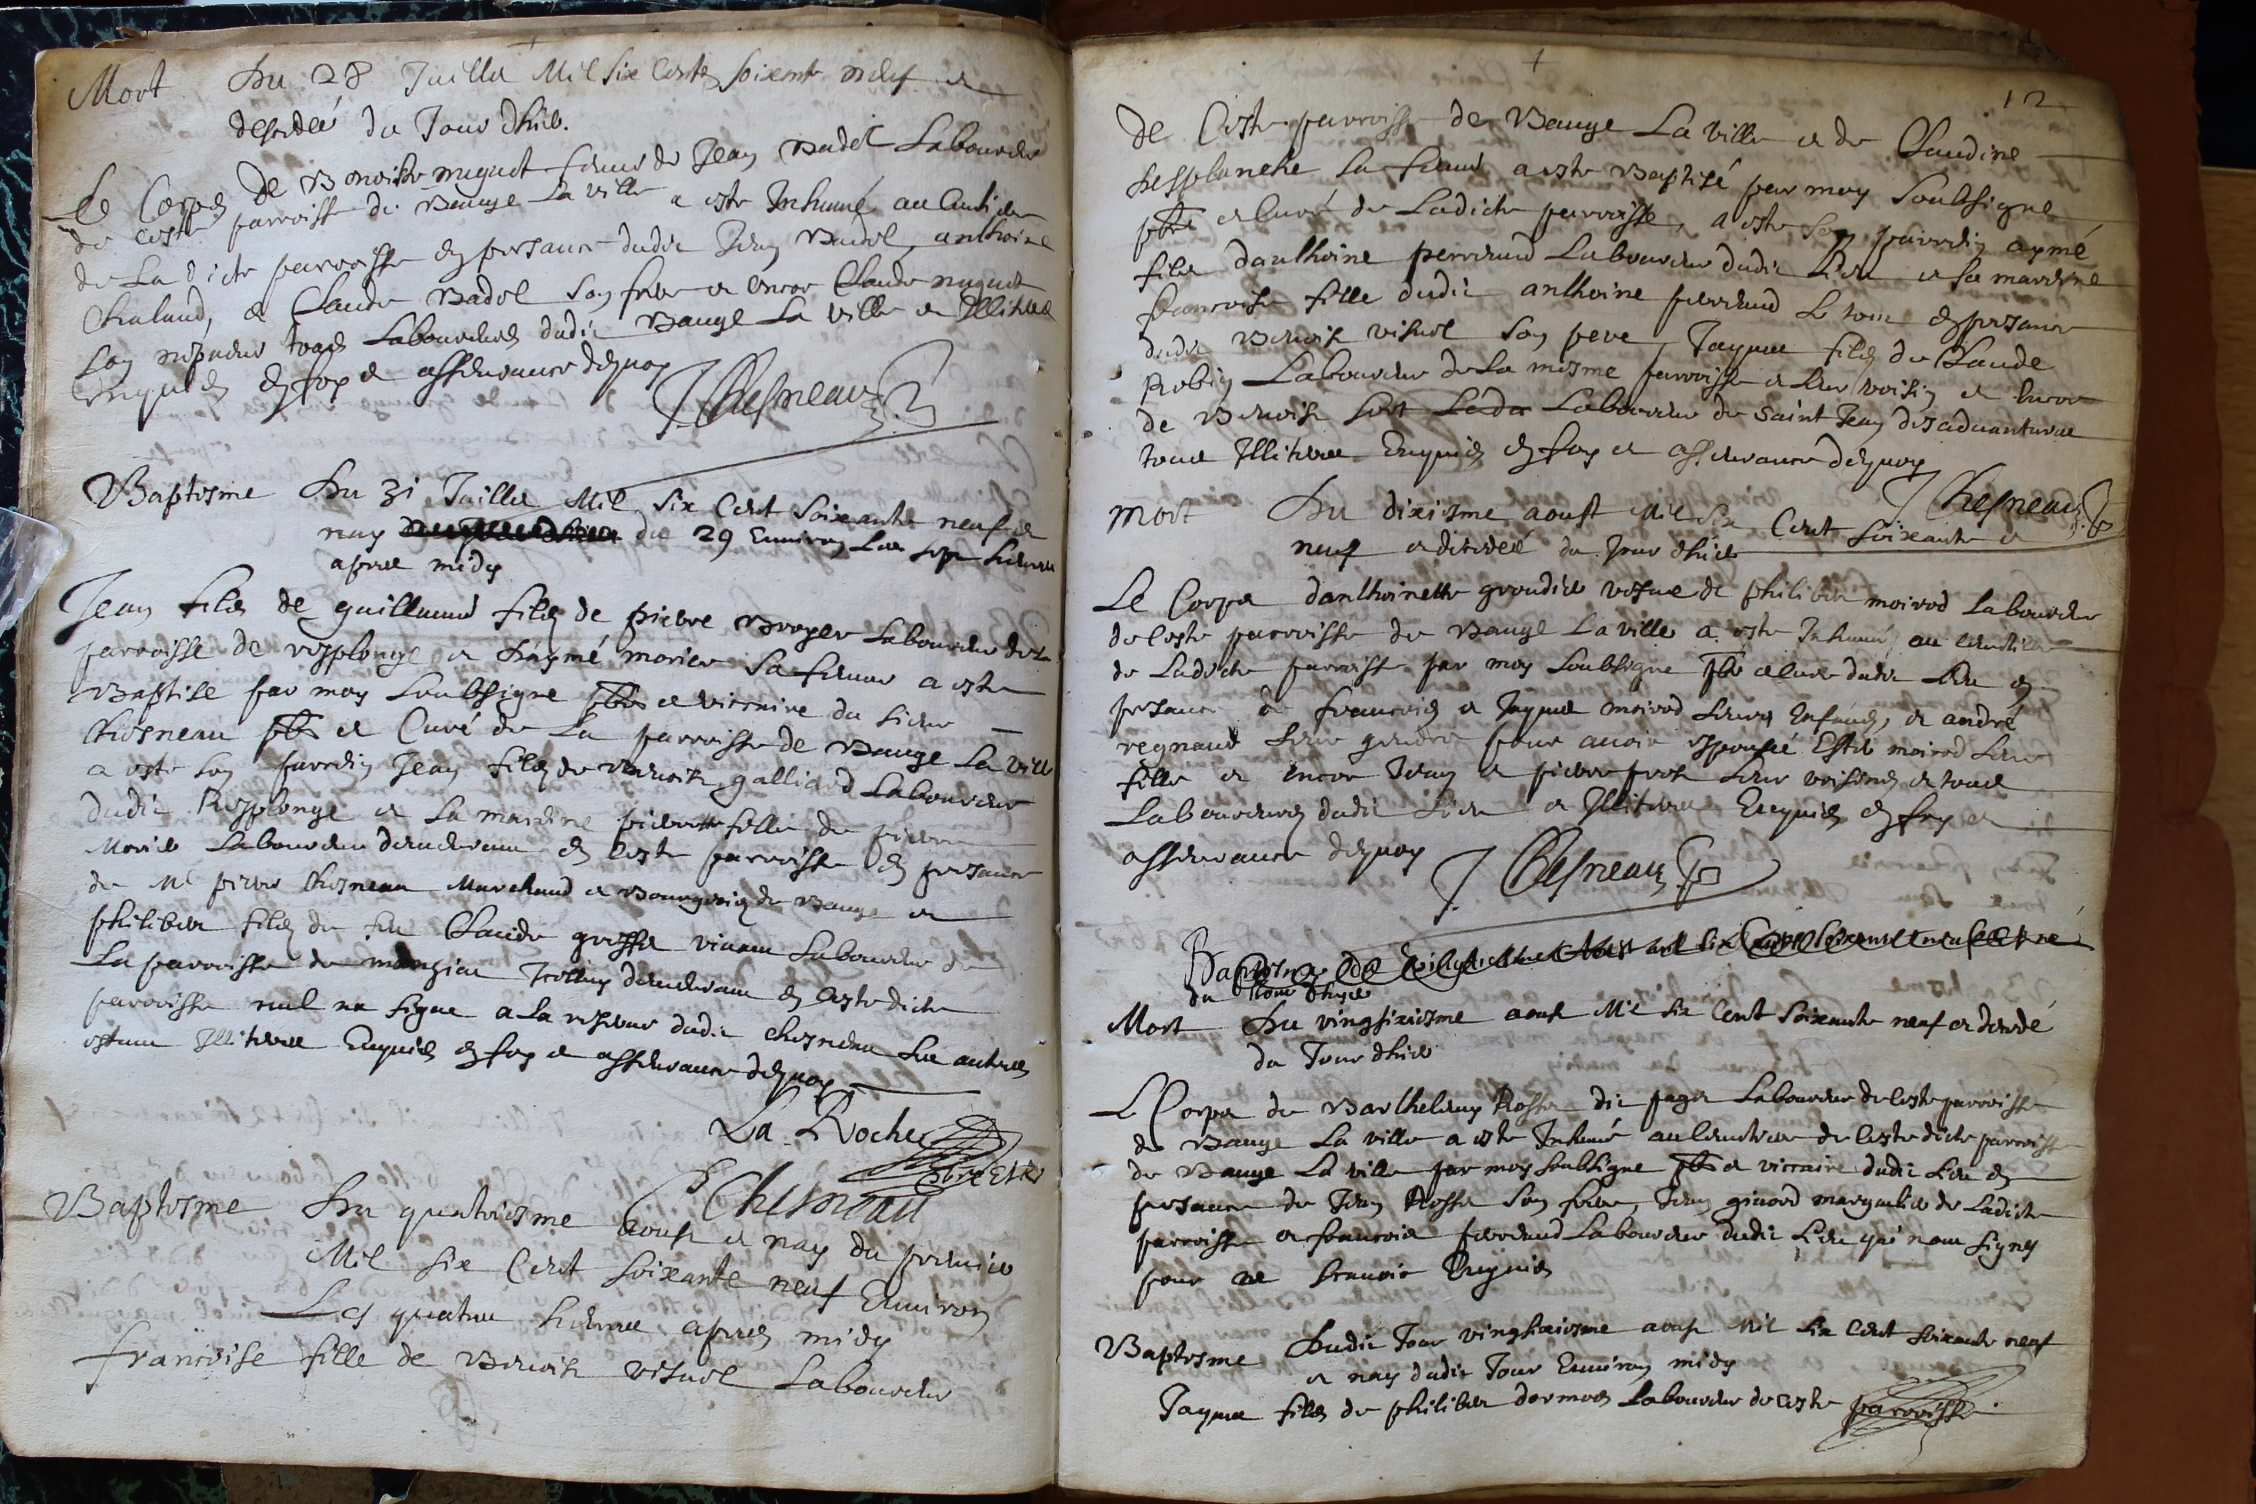 Mort Du 28 Juillet Mil six Cents soixante neuf et
descedée du Jour dhier.
Le Corps De Benoiste muguet femme de Jean Badel Laboureur
de ceste parroisse de Bauge La ville a este Inhumé au Cimetiere
de Ladicte parroisse en presance dudit Jean Badel, anthoine
Chaland, et Claude Badel son frere et encor Claude muguet
son nepueur tous Laboureurs dudit Bauge La ville et Illitere
Enquis en foy et asseurance dequoy
J Chesneau
Baptesme Du 31 Juillet Mil six Cent soixante neuf et
nay du 29 Environ Les sept heures
apres midy
Jean filz de guillaume filz de pierre Broyer Laboureur de la
parroisse de Replonge et Daymé morier sa femme a este
Baptisé par moy soubsigne pbre et viccaire du sieur
Chesneau pbre et Curé de La parroisse de Bauge La ville
a este son parrein Jean filz de Benoist galliard Laboureur
dudit Replonge et sa mareine pierrette fille de pierre
Morier Laboureur demeurant en ceste parroisse en presance
de Me pierre Chesneau Marchand et Bourgeois de Bauge et
philibert filz de feu Claude grosset vivant Laboureur de
La parroisse de manziat demeurant en ceste dicte
parroisse nul na signe a la reserve dudit Chesneau Les autres
estant Illiteres Enquis en foy et asseurance dequoy
La Roche
pbre et vic
P Chesneau
Baptesme Du quatriesme aoust et nay du premier
Mil six Cent soixante neuf Environ
Les quatre heures apres midy
françoise fille de Benoist Laboureur
12
de Ceste parroisse de Bauge La ville et de Claudine
Desplanche sa femme a este Baptisé par moy soubsigne
pbre et Curé de Ladicte parroisse, a este son parrein aymé
filz danthoine perraud Laboureur dudit Lieu et sa mareine
francoise fille dudit anthoine perraud Le tout en presance
dudit Benoist son pere, Jayme filz de Claude
Robin Laboureur de La mesme parroisse et leur voisin et encor
de Benoist Laboureur de saint Jean desaduantures
tous Illiteres Enquis en foy et asseurance dequoy
J Chesneau
Mort Du dixiesme aoust Mil six Cent soixante et
neuf et decedeé du Jour dhier
Le Corps danthoinette vefue de philibert moirod Laboureur
de ceste parroisse de Bauge La ville a este Inhumé au cimetiere
de Ladicte parroisse par moy soubsigne pbre et Cure dudit Lieu en
presance de francois et Jayme moirod Leurs Enfans, et andré
regnaud leur gendre pour auoir espousé moirod Leur
fille et encor Jean et pierre leur voisins et tous
Laboureurs dudit Lieu et Illiteres Enquis en foy et
asseurance dequoy
J. Chesneau
Baptesme
du Jour dhyer
Mort Du vingsixiesme aoust Mil six Cent soixante neuf et decedé
du Jour dhier
Le Corps de Barthelemy Rosset dit page Laboureur de ceste parroisse
de Bauge La ville a este Inhumé au cimetiere de ceste dicte parroisse
de Bauge La ville par moy soubsigne pbre et viccaire dudit Lieu en
presance de Jean Rosset son frere, Jean girard marguelier de Ladicte
parroisse et francois perraud Laboureur dudit Lieu qui nont signes
pour ne scauoir Enquis
Baptesme Dudit Jour vingsixiesme aoust Mil six Cent soixante neuf
et nay dudit Jour Environ midy
Jayme filz de philibert dormoes Laboureur de ceste parroisse